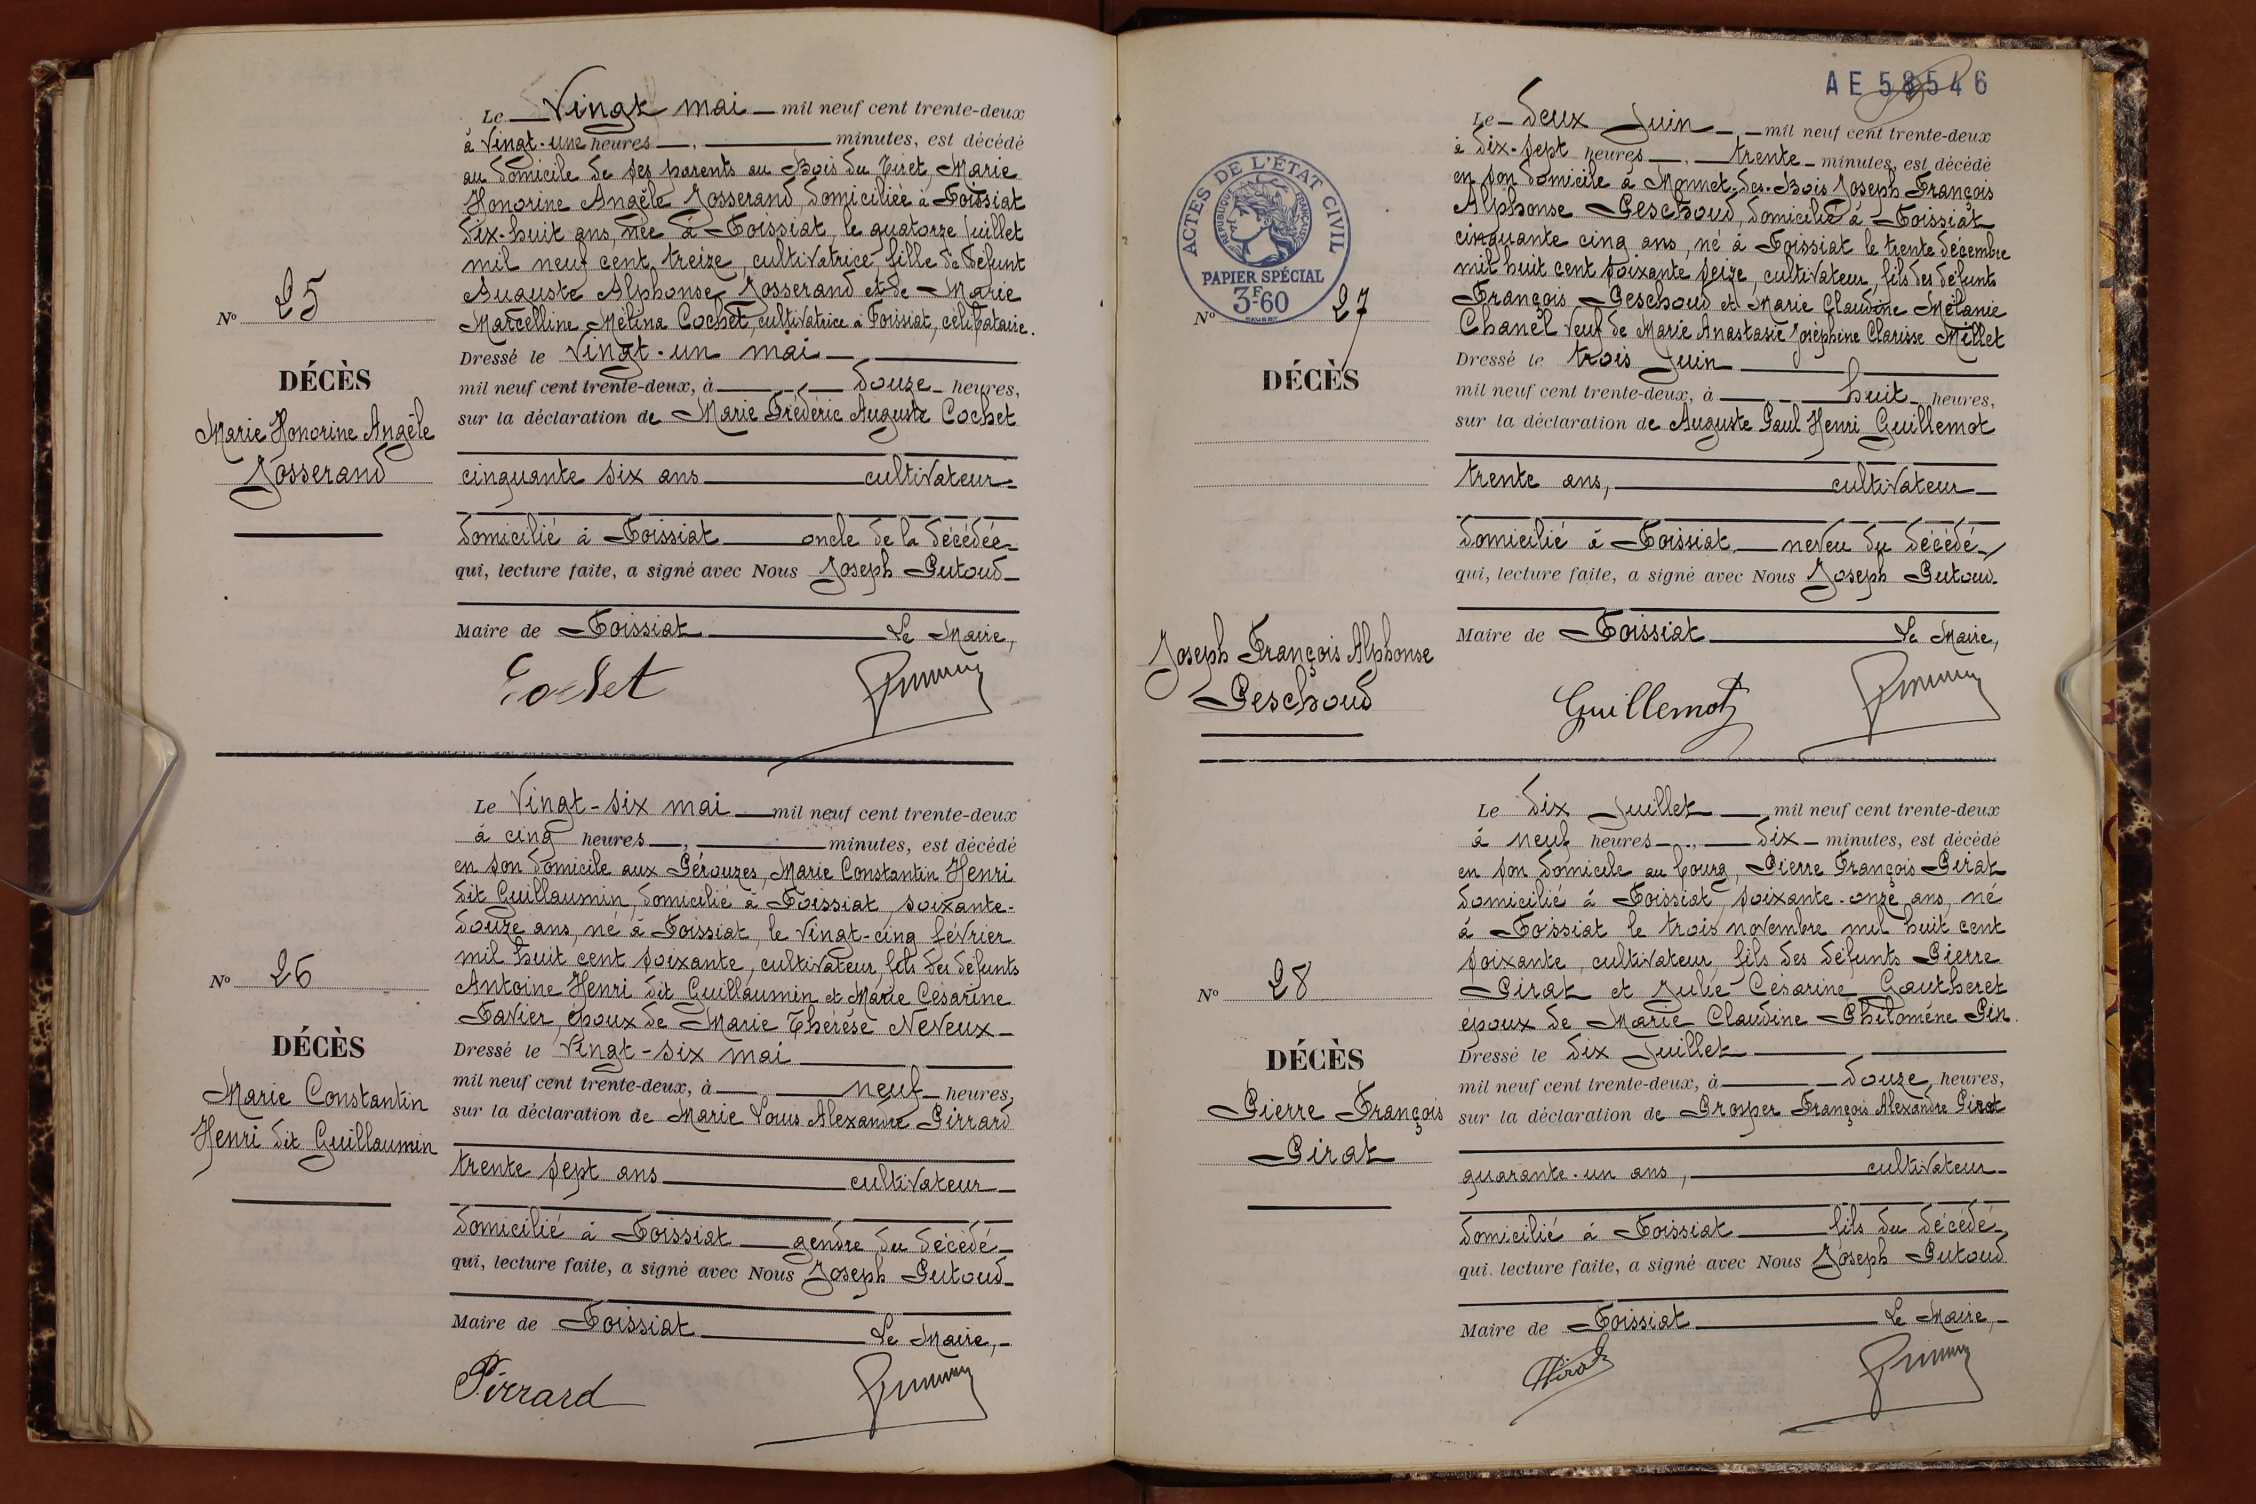 Le Vingt mai mil neuf cent trente-deux
à Vingt-une heures, minutes, est décédé
au domicile de ses parents au Bois du Tiret, Marie
Honorine Angèle Josserand, domiciliée à Foissiat
dix-huit ans, née à Foissiat, le quatorze juillet
mil neuf cent treize, cultivatrice, fille de défunt
Auguste Alphonse Josserand et de Marie
Marcelline Mélina Cochet, cultivatrice à Foissiat, célibataire.
Nº 25
DÉCÈS
Marie Honorine Angèle
Josserand
Dressé le vingt-un mai
mil neuf cent trente-deux, à douze heures,
sur la déclaration de Marie Frédéric Auguste Cochet
cinquante six ans cultivateur
domicilié à Foissiat oncle de la décédée
qui, lecture faite, a signé avec Nous Joseph Putoud
Maire de Foissiat Le Maire,
Cochet
Le Vingt-six mai mil neuf cent trente-deux
à cinq heures, minutes, est décédé
en son domicile aux Pérouzes, Marie Constantin Henri
dit Guillaumin, domicilié à Foissiat, soixante-
douze ans, né à Foissiat, le vingt-cinq février
mil huit cent soixante, cultivateur, fils des défunts
Antoine Henri dit Guillaumin et Marie Césarine
Favier, époux de Marie Thérèse Neveux
Nº 26
DÉCÈS
Marie Constantin
Henri dit Guillaumin
Dressé le vingt-six mai
mil neuf cent trente-deux, à neuf heures,
sur la déclaration de Marie Louis Alexandre Pirrard
trente sept ans cultivateur
domicilié à Foissiat gendre du décédé
qui, lecture faite, a signé avec Nous Joseph Putoud
Maire de Foissiat Le Maire,
Pirrard
AE 58546
ACTES DE L'ÉTAT CIVIL
RÉPUBLIQUE FRANÇAISE
PAPIER SPÉCIAL
3F60
Le deux Juin mil neuf cent trente-deux
à dix-sept heures, trente minutes, est décédé
en son domicile à Monnet-des-Bois Joseph François
Alphonse Peschoud, domicilié à Foissiat
cinquante cinq ans, né à Foissiat le trente décembre
mil huit cent soixante seize, cultivateur, fils des défunts
François Peschoud et Marie Claudine Mélanie
Chanel veuf de Marie Anastasie Joséphine Clarisse Millet
Nº 27
DÉCÈS
Joseph François Alphonse
Peschoud
Dressé le trois Juin
mil neuf cent trente-deux, à huit heures,
sur la déclaration de Auguste Paul Henri Guillemot
trente ans, cultivateur
domicilié à Foissiat neveu du décédé
qui, lecture faite, a signé avec Nous Joseph Putoud
Maire de Foissiat Le Maire,
Guillemot
Le dix Juillet mil neuf cent trente-deux
à neuf heures, dix minutes, est décédé
en son domicile au bourg, Pierre François Pirat
domicilié à Foissiat, soixante-onze ans, né
à Foissiat le trois novembre mil huit cent
soixante, cultivateur, fils des défunts Pierre
Pirat et Julie Césarine Gautheret
époux de Marie Claudine Philomène Pin.
Nº 28
DÉCÈS
Pierre François
Pirat
Dressé le dix Juillet
mil neuf cent trente-deux, à douze heures,
sur la déclaration de Prosper François Alexandre Pirat
quarante-un ans, cultivateur
domicilié à Foissiat fils du décédé
qui, lecture faite, a signé avec Nous Joseph Putoud
Maire de Foissiat Le Maire,
Pirat